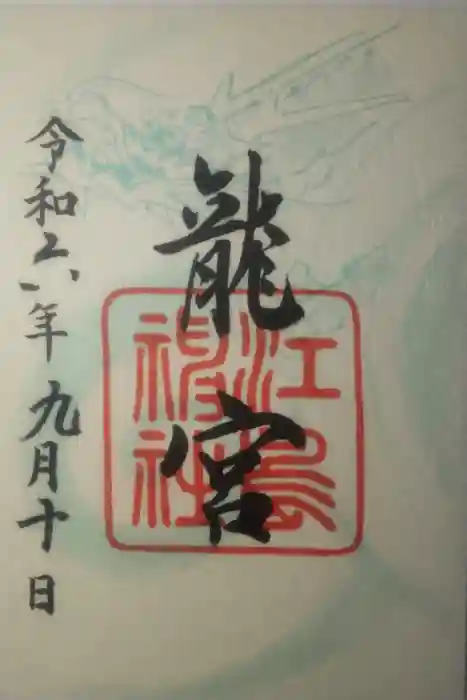 龍宮
江島神社
令和六年九月十日